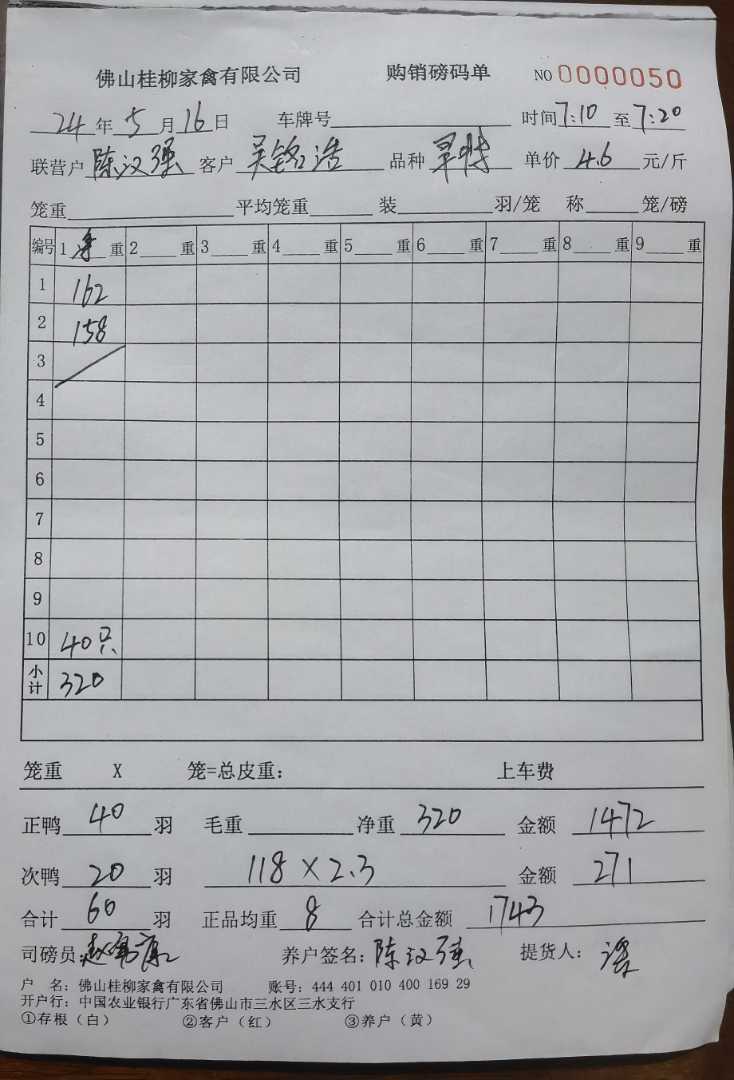 佛山桂柳家禽有限公司 购销磅码单 NO 0000050
24年5月16日 车牌号 时间7:10至7:20
联营户 陈汉强 客户 吴铭浩 品种 单价 4.6 元/斤
笼重 平均笼重 装 羽/笼 称 笼/磅
编号 1 重 2 重 3 重 4 重 5 重 6 重 7 重 8 重 9 重
1 162
2 158
3
4
5
6
7
8
9
10 40只
小计 320
笼重 X 笼=总皮重: 上车费
正鸭 40 羽 毛重 净重 320 金额 1472
次鸭 20 羽 118×2.3 金额 271
合计 60 羽 正品均重 8 合计总金额 1743
司磅员: 养户签名: 陈汉强 提货人:
户 名: 佛山桂柳家禽有限公司 账号: 444 401 010 400 169 29
开户行: 中国农业银行广东省佛山市三水区三水支行
①存根(白) ②客户(红) ③养户(黄)